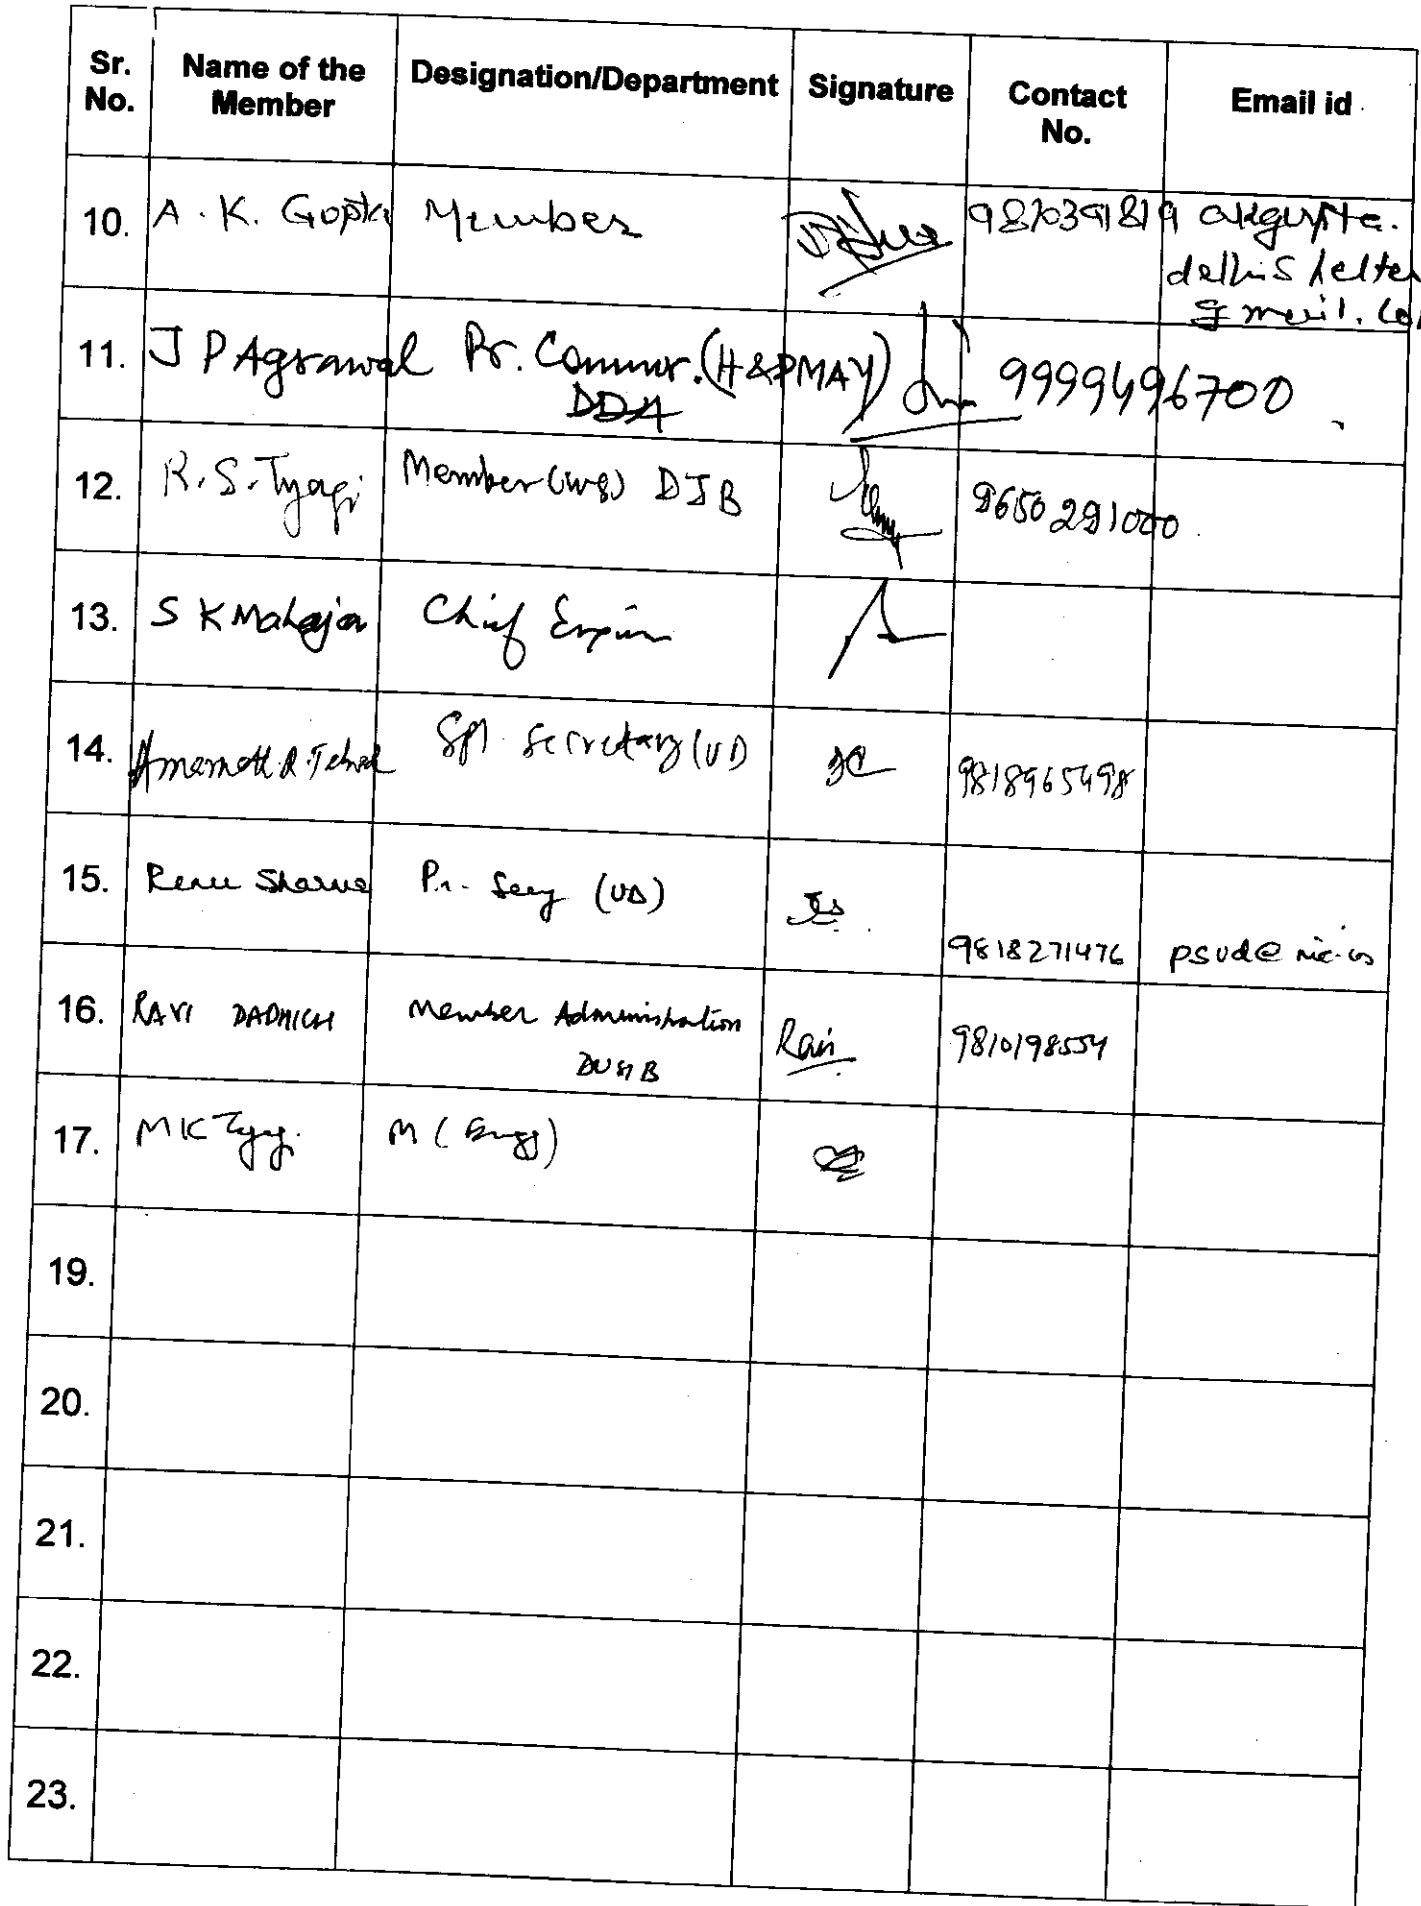 Sr. No. Name of the Member Designation/Department Signature Contact No. Email id
10. A. K. Gupta Member 9810391819 akgupta.
delhishelter
gmail.co
11. J P Agrawal Pr. Commr. (H&PMAY) 9999496700
DDA
12. R. S. Tyagi Member (WS) DJB 9650291000
13. S K Mahajan Chief Engin
14. Spl. Secretary (UD) 9818965498
15. Renu Sharma Pr. Secy (UD) 9818271476 psud@nic.in
16. RAVI DADHICH Member Administration Ravi 9810198554
DUSIB
17. M K Tyagi M (Engg)
19.
20.
21.
22.
23.